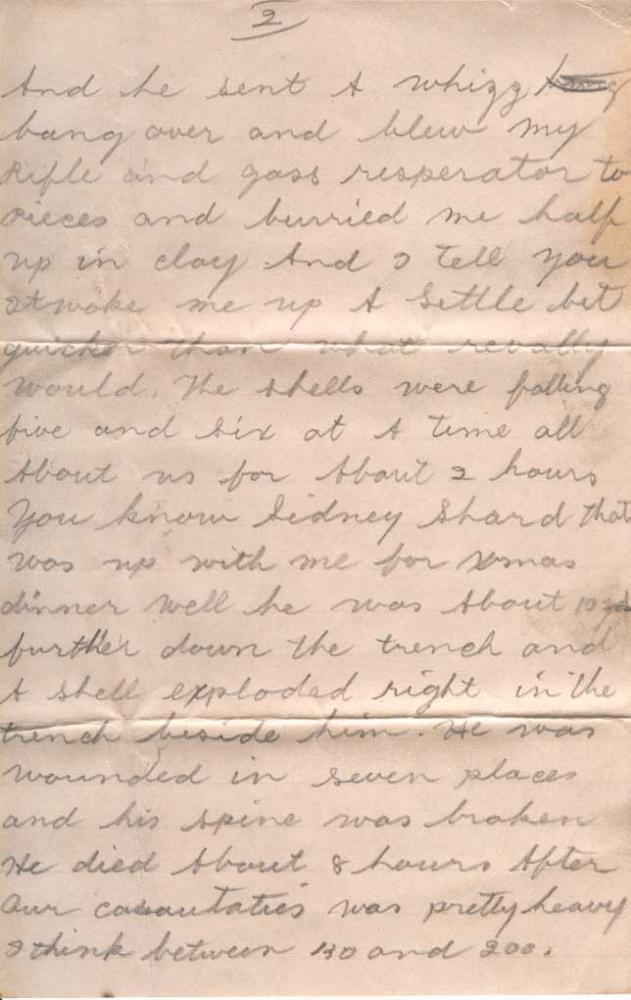 2
And he sent A whizz
bang over and blew my
Rifle and gass resperator to
pieces and burried me half
up in clay And I tell you
It woke me up A little bit
quicker than what revally
would. The shells were falling
five and six at A time all
About us for About 2 hours
You know Sidney Shard that
was up with me for Xmas
dinner well he was About 10 yds
further down the trench and
A shell exploded right in the
trench beside him. He was
wounded in seven places
and his spine was broken
He died About 8 hours After
Our casautaties was pretty heavy
I think between and 200.